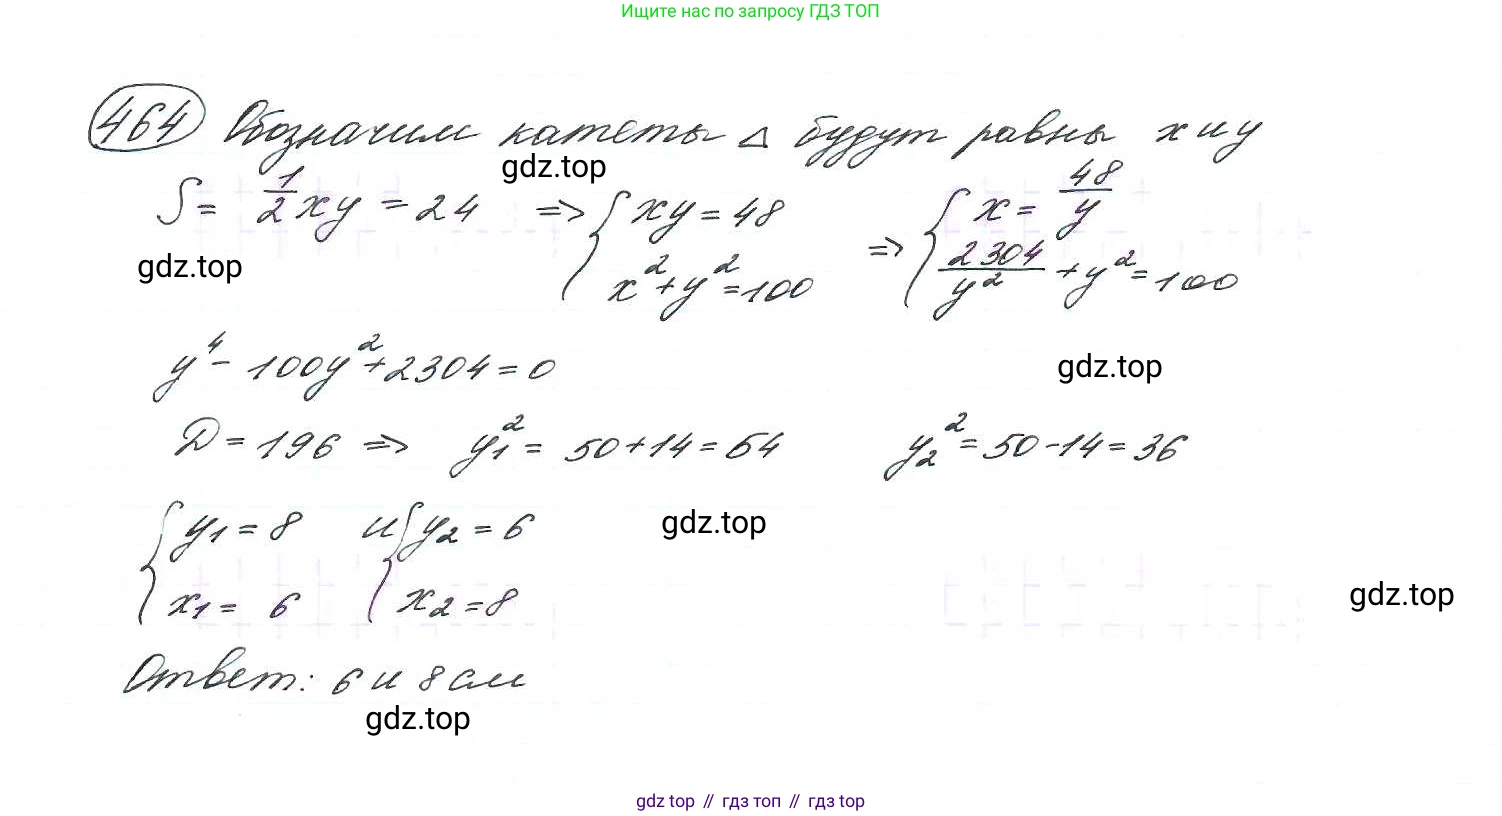 Ищите нас по запросу ГДЗ ТОП
464 Обозначим катеты △ будут равны x и y
gdz.top
S = 1/2 xy = 24 => { xy = 48 ; x² + y² = 100 => { x = 48/y ; 2304/y² + y² = 100
gdz.top
y⁴ - 100y² + 2304 = 0
gdz.top
D = 196 => y₁² = 50 + 14 = 64 y₂² = 50 - 14 = 36
{ y₁ = 8 ; x₁ = 6 и { y₂ = 6 ; x₂ = 8
gdz.top
gdz.top
Ответ: 6 и 8 см
gdz.top
gdz top // гдз топ // гдз top